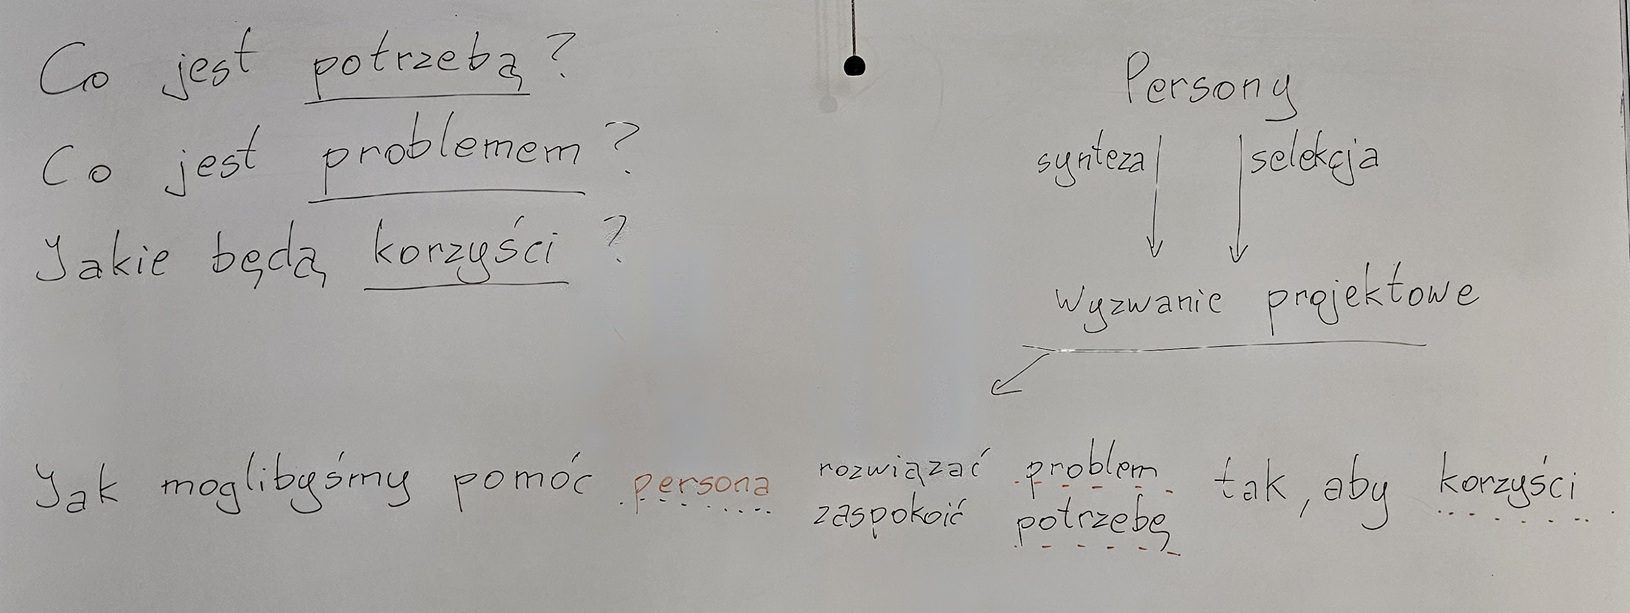 Co jest potrzebą?
Co jest problemem?
Jakie będą korzyści?
Persony
synteza selekcja
Wyzwanie projektowe
Jak moglibyśmy pomóc persona rozwiązać problem tak, aby korzyści
zaspokoić potrzebę